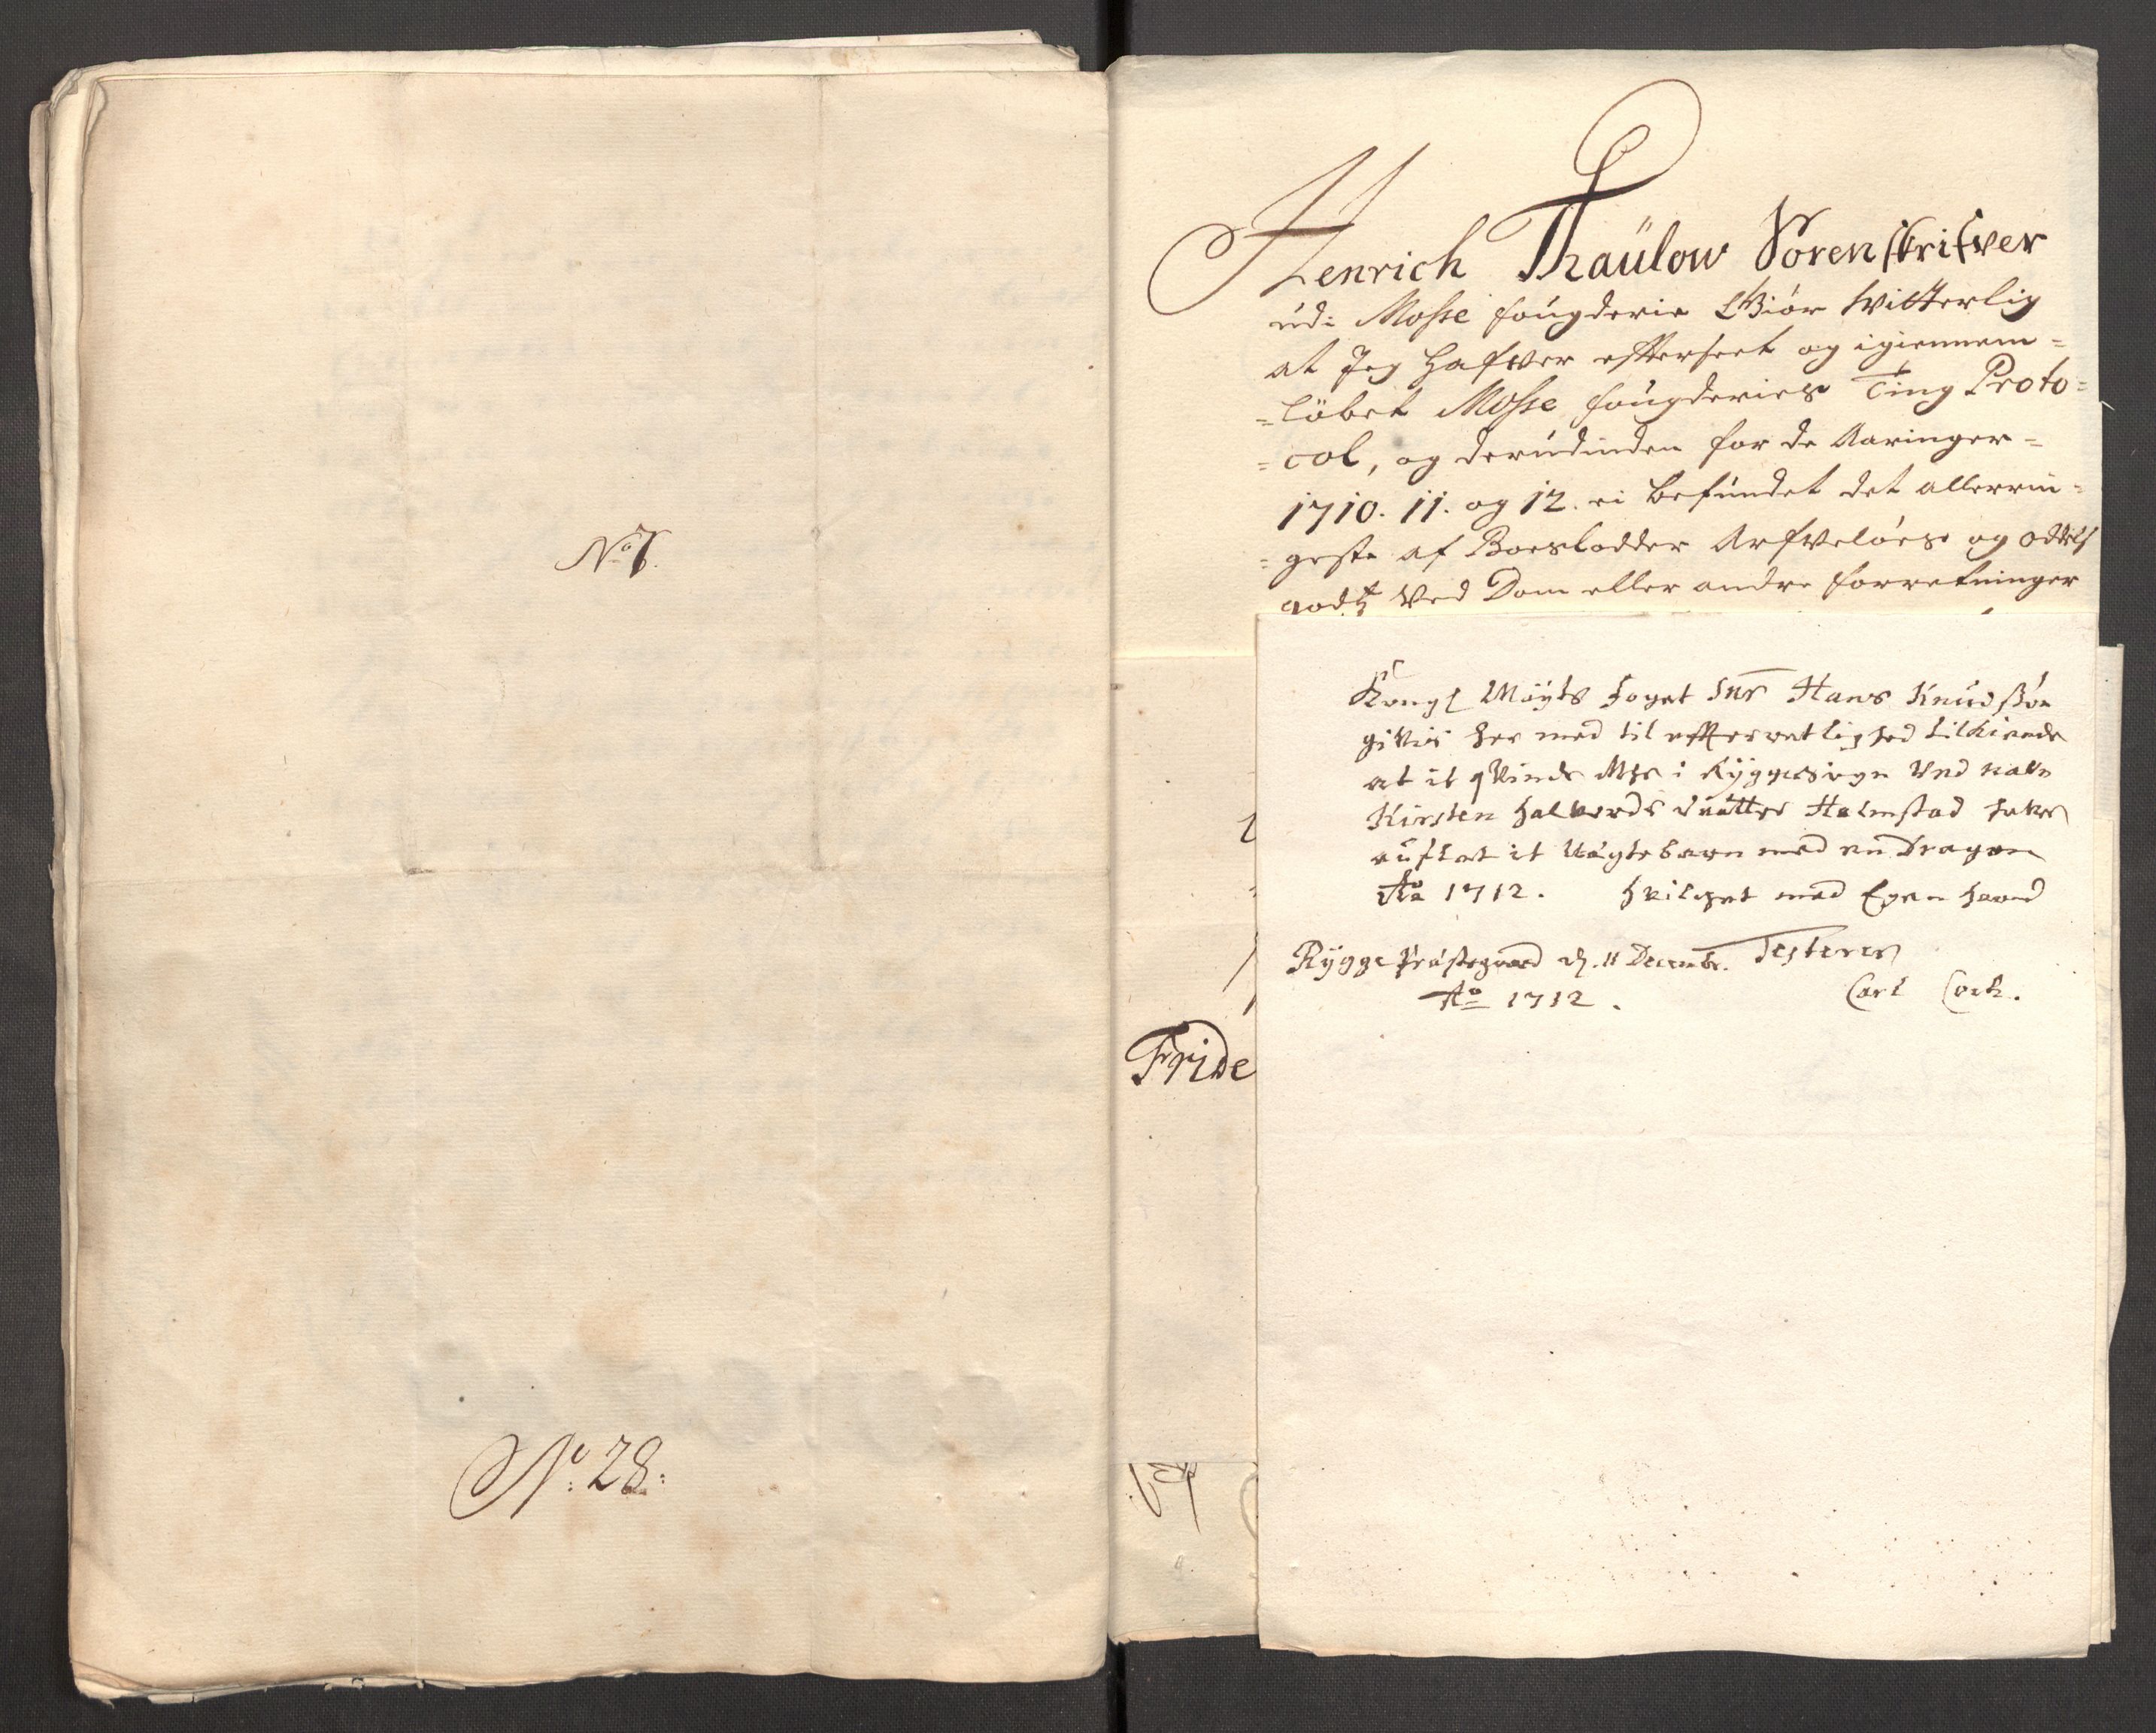 No 7.
No: 28:
Henrich Thaülow Sorenskrifver
udi Mosse fougderie Giør Witterlig
at Jeg hafver efterseet og igiennem-
-løbet Mosse fougderies Ting Proto-
-col, og derudinden for de Aaringer-
1710. 11. og 12. ei befundet det allerrin-
-geste af Boeslodder Arfveløes og odels
godtz Ved Dom eller andre forretninger
Fride
Kongl Mayts foget Snr Hans Knudssøn
givis her med til efterretlighed tilkiende
at it qvinde Mske i Rygge sogn Ved nafn
Kirsten halvords daatter Halmstad hafver
aflet it Uægte barn med en Dragon
Ao 1712. hvilchet med Egen haand
Rygge Præstegaard d. 11 Decembr. Testerer
Ao 1712. Carl Coch.